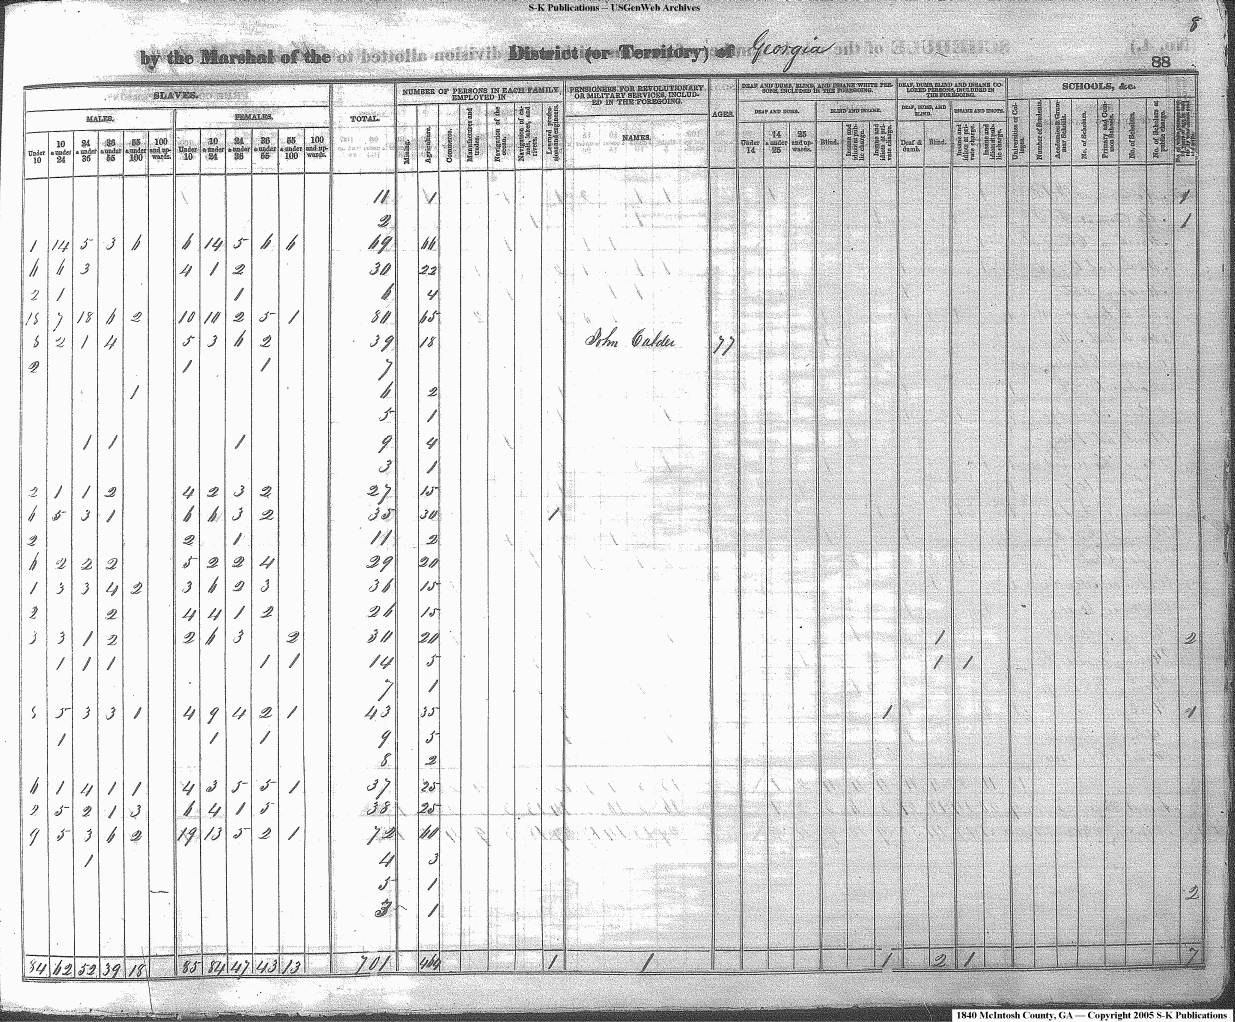 S-K Publications – USGenWeb Archives
8
by the Marshal of the District (or Territory) of Georgia
88
SLAVES.
NUMBER OF PERSONS IN EACH FAMILY EMPLOYED IN
PENSIONERS FOR REVOLUTIONARY OR MILITARY SERVICES, INCLUDED IN THE FOREGOING.
DEAF AND DUMB, BLIND, AND INSANE WHITE PERSONS, INCLUDED IN THE FOREGOING.
DEAF, DUMB, BLIND AND INSANE COLORED PERSONS, INCLUDED IN THE FOREGOING.
SCHOOLS, &c.
MALES. FEMALES. TOTAL. NAMES. AGES. DEAF AND DUMB. BLIND AND INSANE. DEAF, DUMB, AND BLIND. INSANE AND IDIOTS.
Under 10 10 & under 24 24 & under 36 36 & under 55 55 & under 100 100 and upwards. Under 10 10 & under 24 24 & under 36 36 & under 55 55 & under 100 100 and upwards.
Mining. Agriculture. Commerce. Manufactures and trades. Navigation of the ocean. Navigation of canals, lakes, and rivers. Learned professions and engineers.
Under 14 14 & under 25 25 and upwards. Blind. Insane and idiots at public charge. Insane and idiots at private charge. Deaf & dumb. Blind. Insane and idiots at private charge. Insane and idiots at public charge.
Universities or College. Number of Students. Academies & Grammar Schools. No. of Scholars. Primary and Common Schools. No. of Scholars. No. of Scholars at public charge.
11 1 1
2 1
1 14 5 3 6 6 14 5 6 6 69 66
6 6 3 4 1 2 30 22
2 1 1 6 4
18 7 18 6 2 10 10 2 5 1 80 65
8 2 1 4 5 3 6 2 39 18 John Calder 77
2 1 1 7
1 6 2
5 1
1 1 1 9 4
3 1
2 1 1 2 4 2 3 2 27 15
6 5 3 1 6 6 3 2 35 30 1
2 2 1 11 2
6 2 2 2 5 2 2 4 29 20
1 3 3 4 2 3 6 2 3 36 15
2 2 4 4 1 2 26 15
3 3 1 2 2 6 3 2 30 20 1 2
1 1 1 1 1 14 5 1 1
7 1
8 5 3 3 1 4 9 4 2 1 43 35 1 1
1 1 1 9 5
8 2
6 1 4 1 1 4 3 5 5 1 37 25
2 5 2 1 3 6 4 1 5 38 25
9 5 3 6 2 19 13 5 2 1 72 60
1 4 3
5 1 2
3 1
84 62 52 39 18 85 84 47 43 13 701 464 1 1 1 2 1 7
1840 McIntosh County, GA — Copyright 2005 S-K Publications